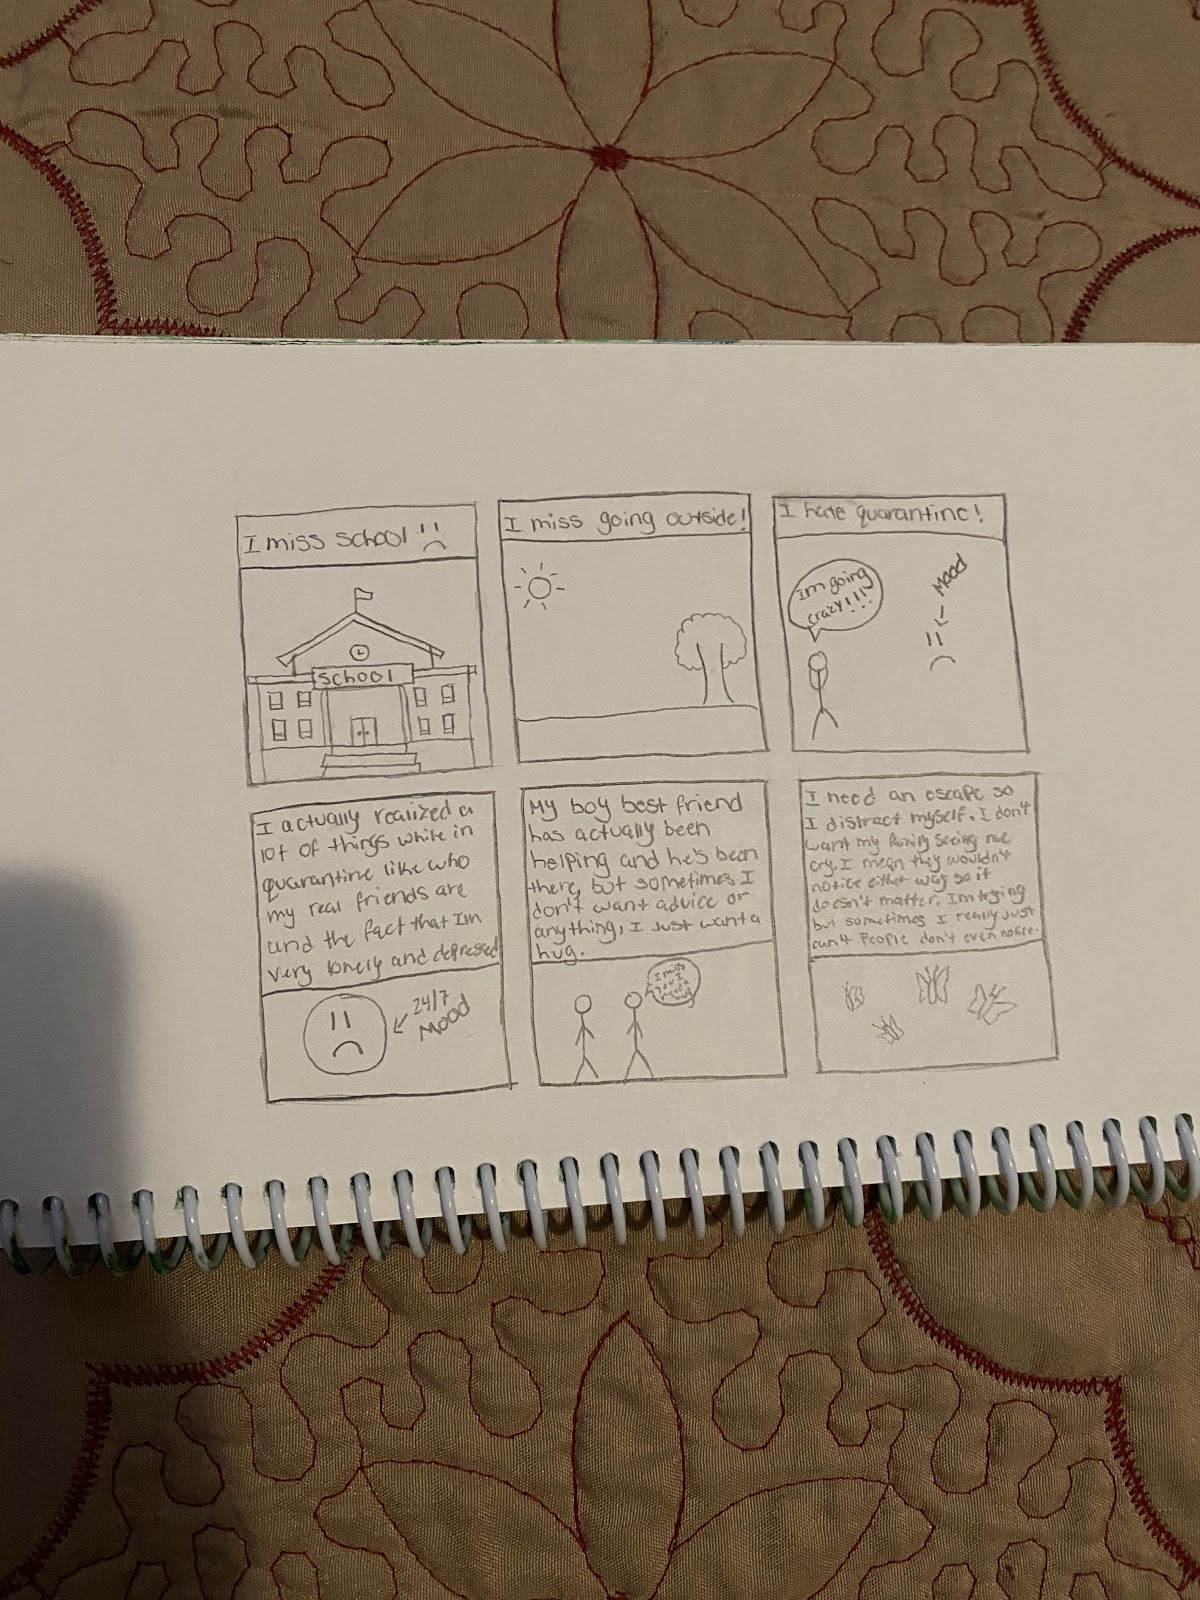 I miss school
SCHOOL
I miss going outside!
I hate quarantine!
Im going
crazy!!!!
Mood
I actually realized a
lot of things while in
quarantine like who
my real friends are
and the fact that Im
very lonely and depressed
24/7
Mood
My boy best friend
has actually been
helping and he's been
there, but sometimes I
don't want advice or
anything, I just want a
hug.
I miss
you I
need a
hug
I need an escape so
I distract myself. I don't
want my family seeing me
cry. I mean they wouldn't
notice either way so it
doesn't matter. Im trying
but sometimes I really just
can't People don't even notice.